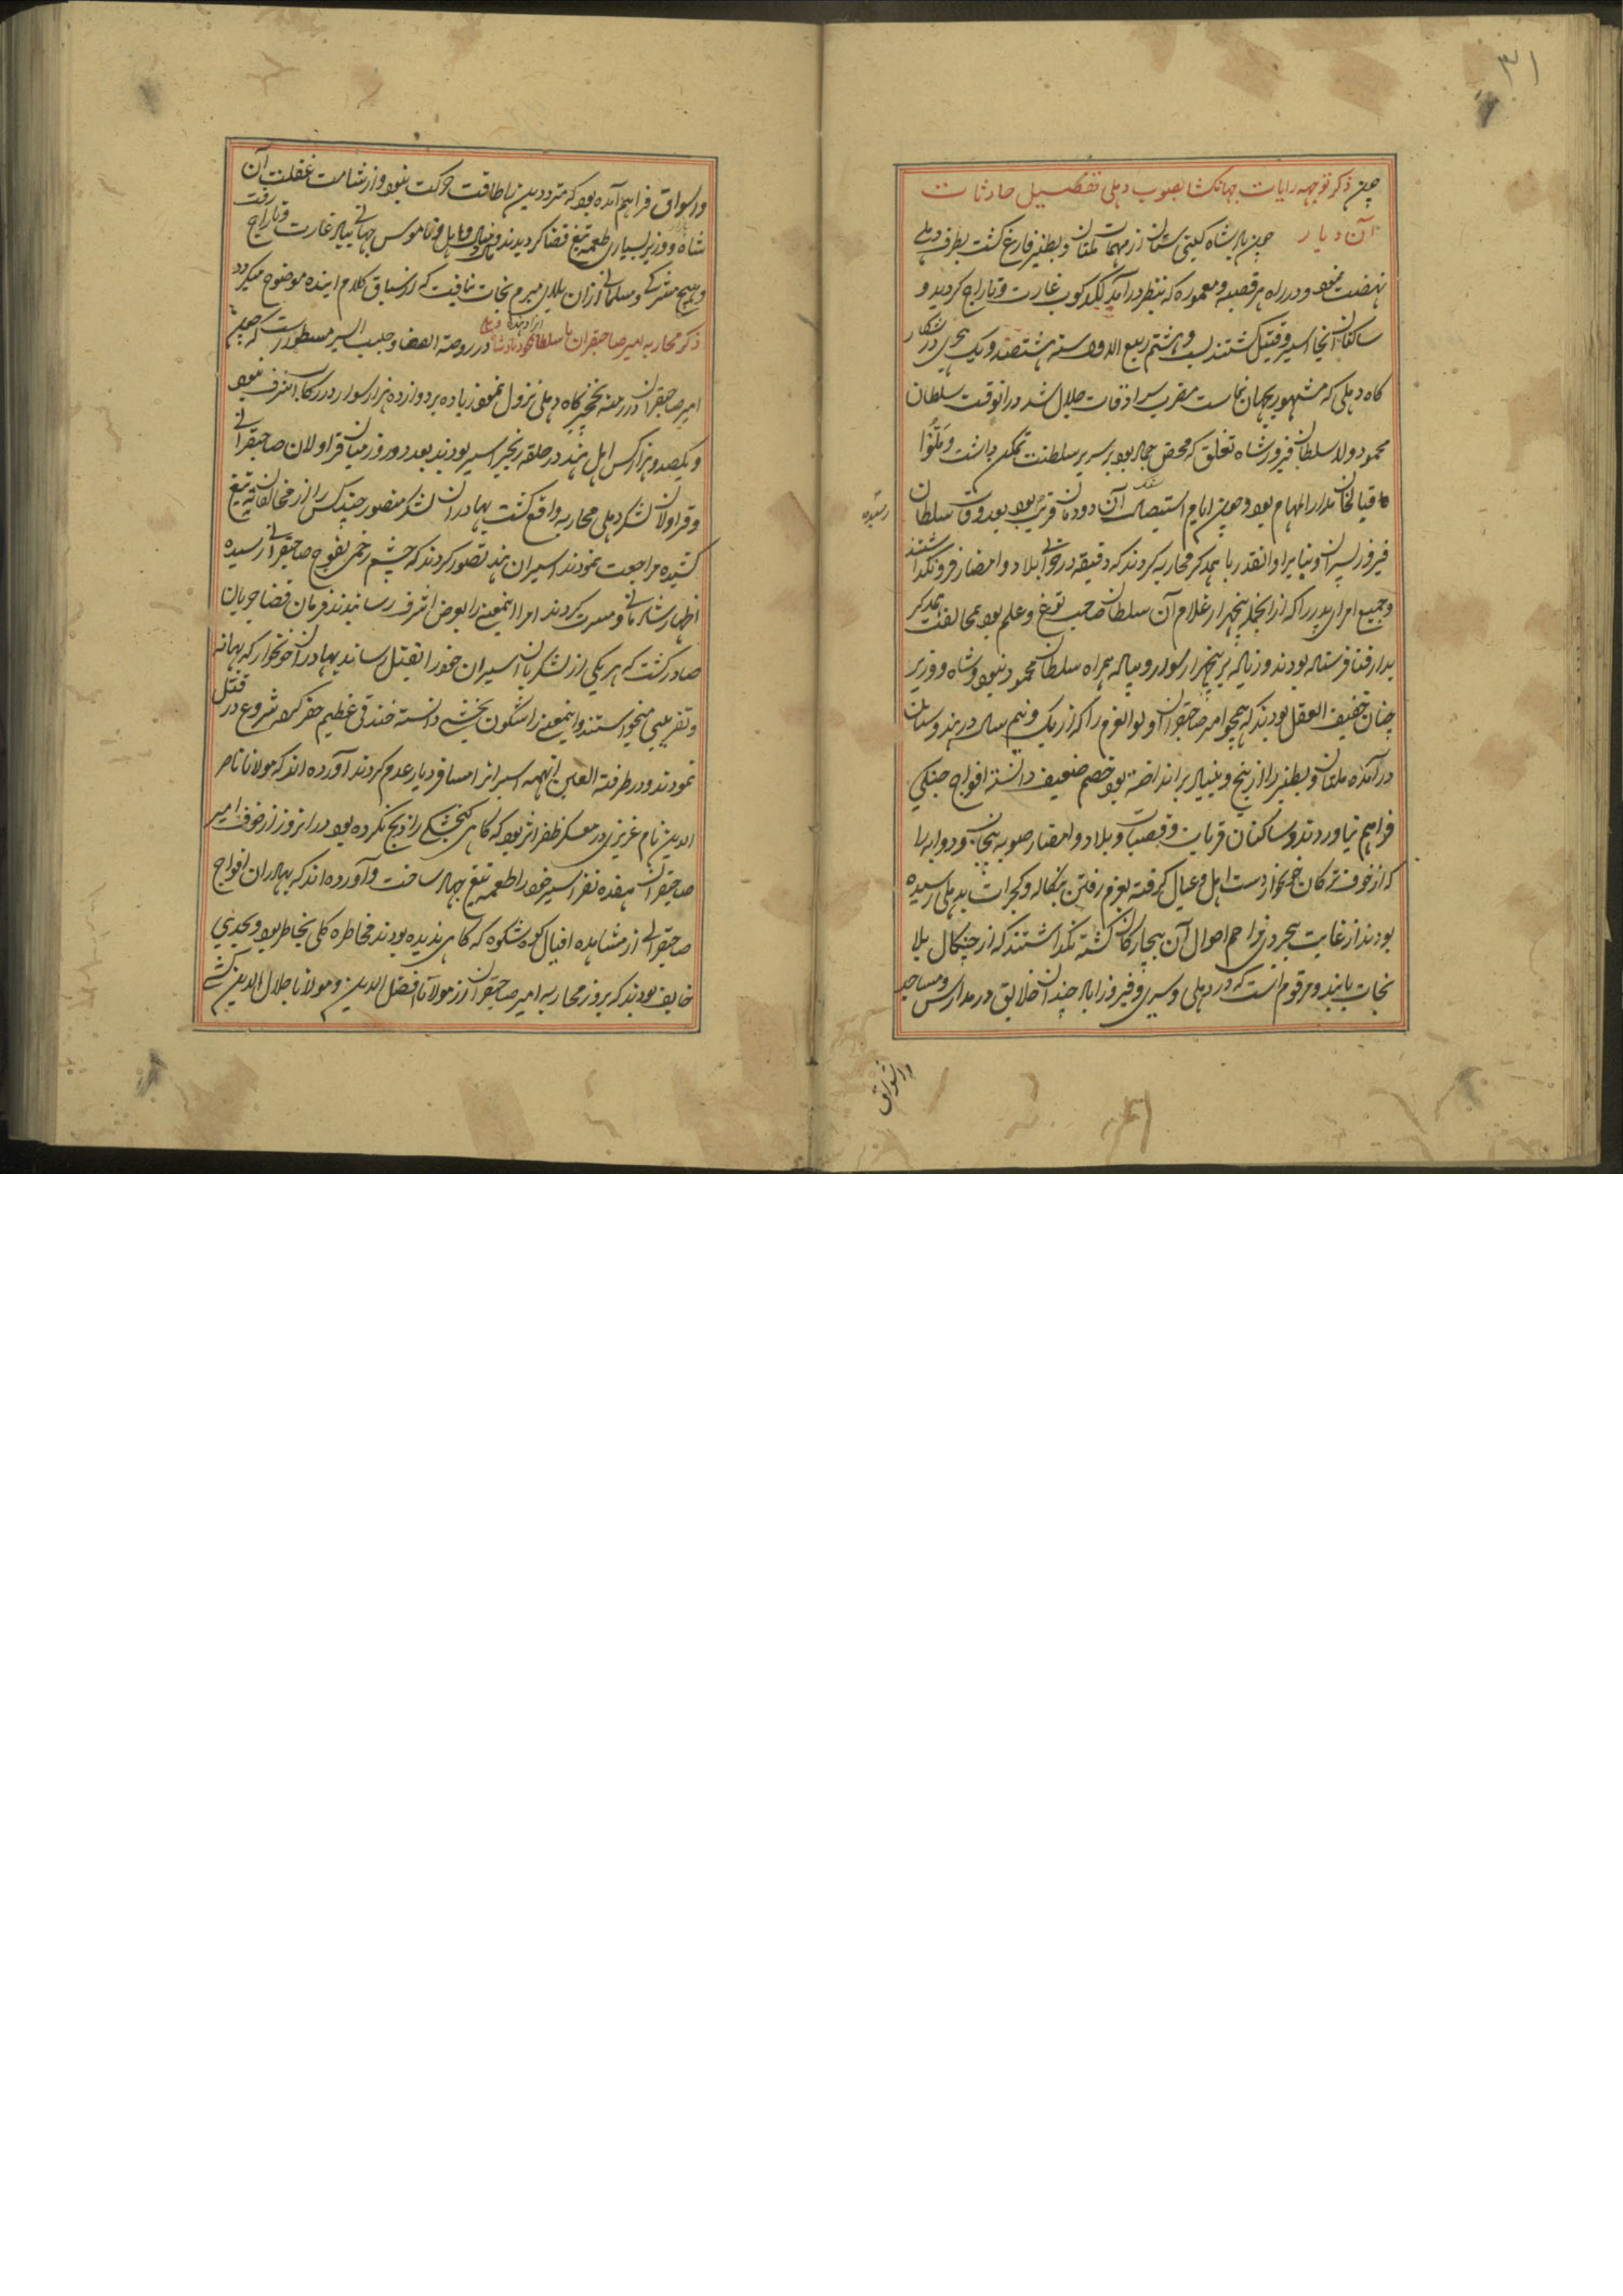 ۳۱
چین ذکر توجهه رایات جهانکشا بصوب دهلی تفصیل حادثات
آن دیار چون پادشاه کیتی ستان از مهمات ملتان و بطنیز فارغ کشت بطرف دهلی
نهضت نمود و در راه هر قصبه و معموره که بنظر درآمد لکدکوب غارت و تاراج کردید و
ساکنان آنجا اسیر و قتیل کشتند بیست و هشتم ربیع الاول سنه هشتصد و یک هجری در شکار
کاه دهلی که مشهور بجهان نماست مقرب سرادقات جلال شد در آنوقت سلطان
محمود ولد سلطان فیروز شاه تغلق که محض جهال بود بر سریر سلطنت تمکن داشت و ملو
اقبالخان مدارالمهام بود و چون ایام استیصال آن دودمان قریب بود بعد وفات سلطان
رسیده
فیروز پسران و بنایر او آنقدر با همدکر محاربه کردند که دقیقه در خرابی بلاد و امصار فرو نکذاشتند
و جمیع امرای پدر را که از آنجمله پنجهزار غلام آن سلطان صاحب توغ و علم بود بمخالفت همدکر
بدار فنا فرستاده بودند و زیاده بر پنجهزار سوار و پیاده همراه سلطان محمود نبود و شاه و وزیر
چنان خفیف العقل بودند که همچو امیر صاحبقران اولوالعزم را که از یک و نیم سال در هندوستان
درآمده ملتان و بطنیز را از بیخ و بنیاد برانداخته بود خصم ضعیف دانسته افواج جنکی
فراهم نیاوردند و ساکنان قریات و قصبات و بلاد و امصار صوبه پنجاب و دوابه را
که از خوف ترکان خونخوار دست اهل و عیال کرفته بعزم رفتن بنکاله و کجرات بدهلی رسیده
بودند از غایت بیخردی مزاحم احوال آن بیچارکان کشته نکذاشتند که از چنکال بلا
نجات یابند و مرقوم است که در دهلی و سیری و فیروزاباد چندان خلایق در مدارس و مساجد
و اسواق
و اسواق فراهم آمده بود که مترددین را طاقت حرکت نبود و از شامت غفلت آن
شاه و وزیر بسیاری طعمه تیغ قضا کردیدند و مال و اهل و ناموس جهانی بباد غارت و تاراج رفت
و هیچ مشرک و مسلمانی از آن بلای مبرم نجات نیافت که از سیاق کلام آینده بوضوح میکردد
ذکر محاربه امیر صاحبقران با سلطان محمود پادشاه در روضة الصفا و حبیب السیر مسطور است که چون
امیر صاحبقران در منه نخچیرکاه دهلی نزول نمود زیاده بر دوازده هزار سوار در رکاب اشرف نبود
و یکصد هزار کس اهل هند در حلقه زنجیر اسیر بودند بعد دو روز میان قراولان صاحبقرانی
و قراولان لشکر دهلی محاربه واقع کشت بهادران لشکر منصور چند کس را از مخالفان به تیغ
کشیده مراجعت نمودند اسیران هند تصور کردند که چشم زخمی بفوج صاحبقرانی رسیده
اظهار شادمانی و مسرت کردند امرا اینمعنی را بعرض اشرف رسانیدند فرمان قضا جریان
صادر کشت که هر یکی از لشکریان اسیران خود را بقتل رساند بهادران خونخوار که بهانه
و تقریبی میخواستند و اینمعنی را شکون بخشی دانسته خندقی عظیم حفر کرده شروع در قتل
نمودند و در طرفة العین آنهمه اسیران را مسافر دیار عدم کردند آورده اند که مولانا ناصر
الدین نام عزیزی در معسکر ظفر اثر بود که کاهی کنجشکی را ذبح نکرده بود در آنروز از خوف امیر
صاحبقران هفده نفر اسیر خود را طعمه تیغ جهاد ساخت و آورده اند که بهادران افواج
صاحبقرانی از مشاهده افیال کوه شکوه که کاهی ندیده بودند مخاطره کلی بخاطر بود و بحدی
خایف بودند که بروز محاربه امیر صاحبقران از مولانا افضل الدین و مولانا جلال الدین کشی